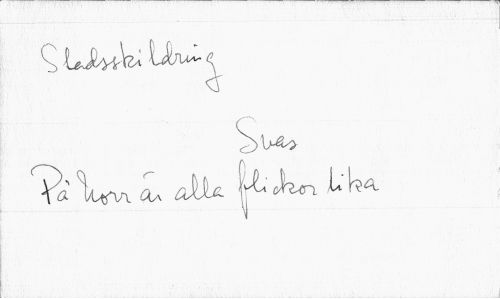 Stadsskildring
Svas
På Norr är alla flickor lika